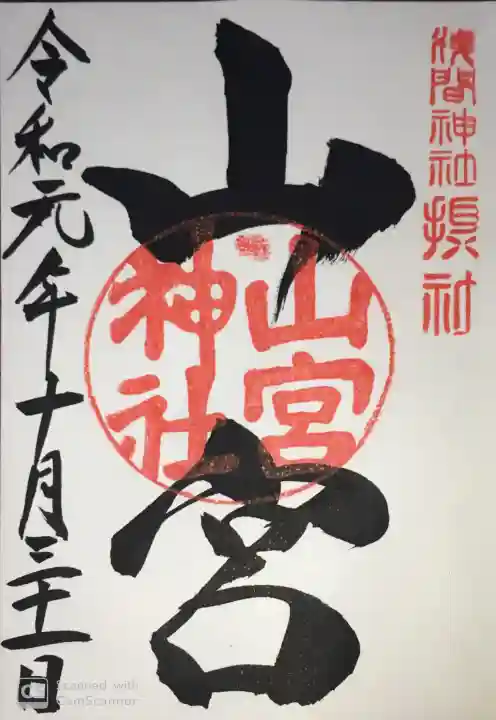 浅間神社摂社
山宮
山宮
神社
令和元年十月三十一日
Scanned with
CamScanner